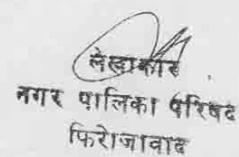 लेखाकार
नगर पालिका परिषद
फिरोजावाद